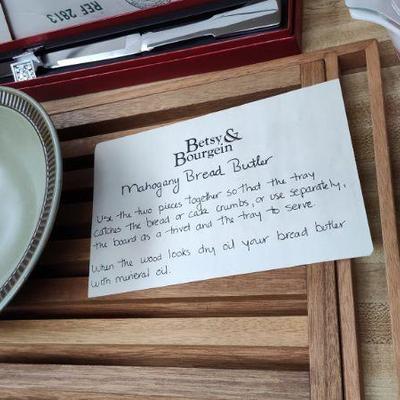 REF 2813
Betsy &
Bourgein
Mahogany Bread Butler
Use the two pieces together so that the tray
catches the bread or cake crumbs, or use separately,
the board as a trivet and the tray to serve.
When the wood looks dry oil your bread butler
with mineral oil.